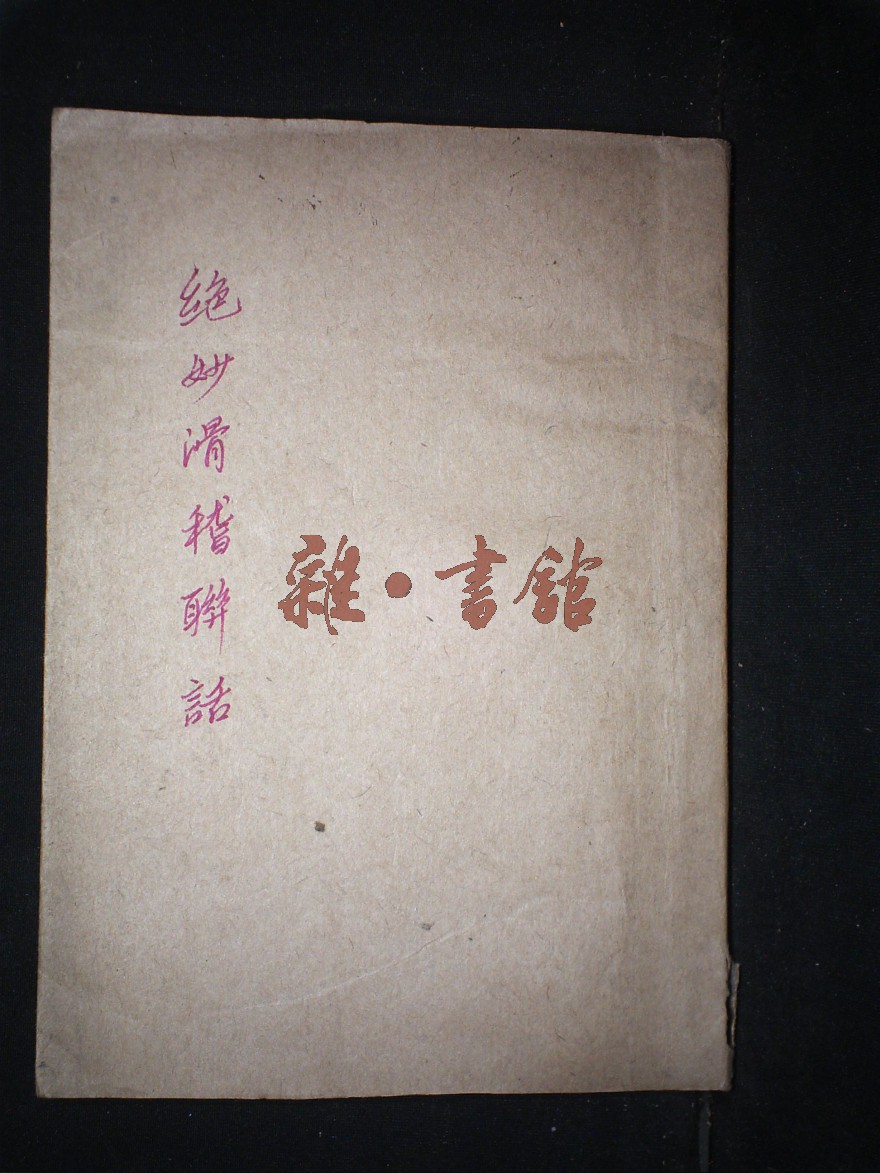 絕妙滑稽聯話
雜·書館